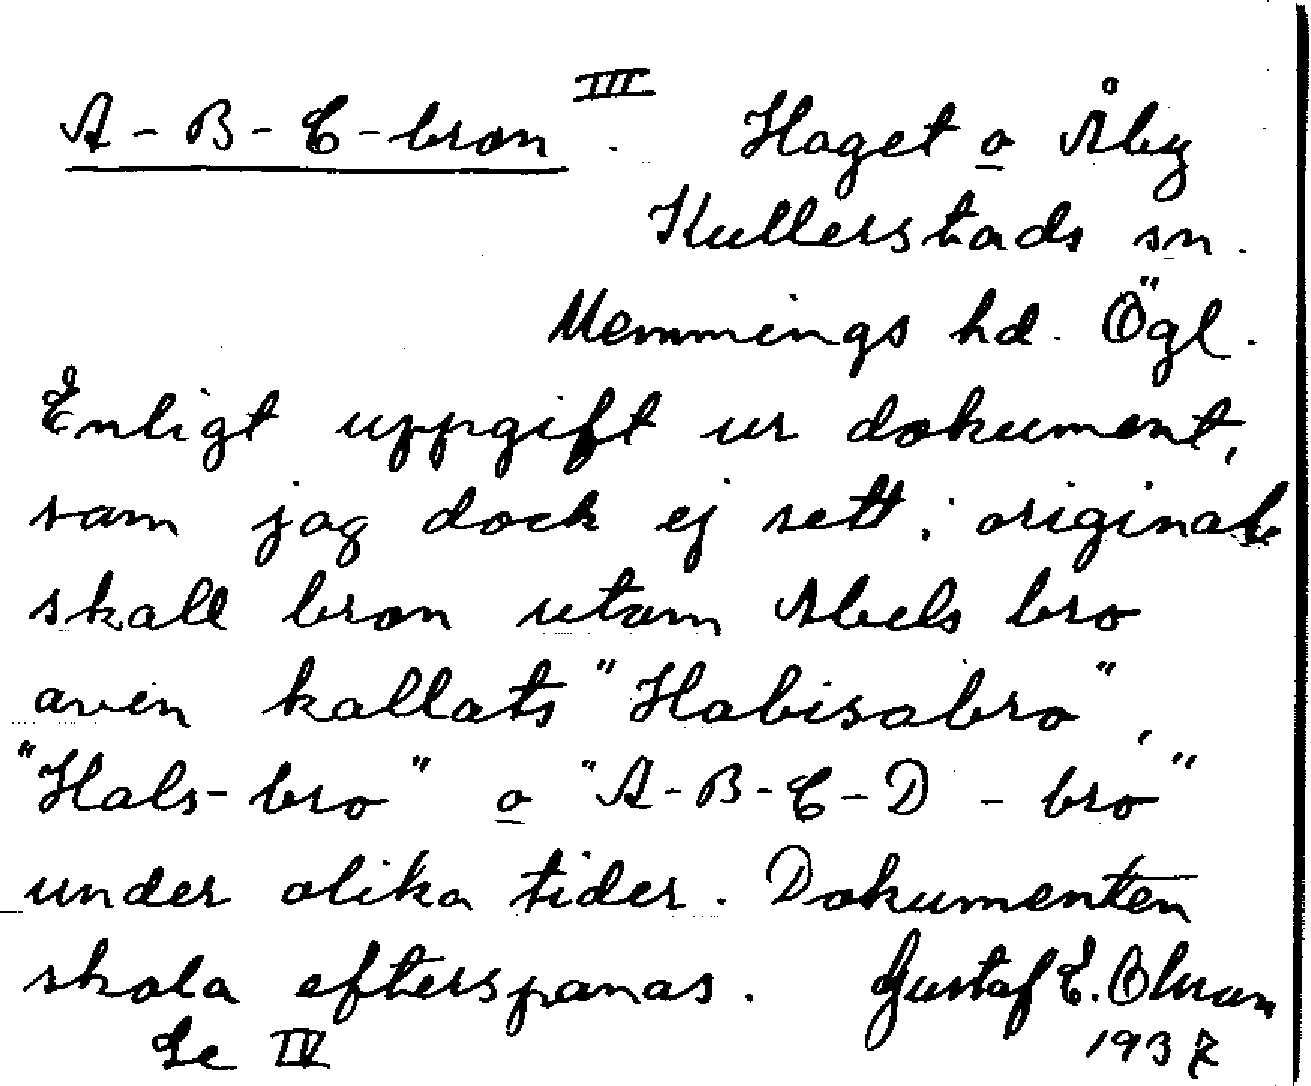 A-B-C-bron III. Haget o Åby
Kullerstads sn.
Memmings hd. Ögl.
Enligt uppgift ur dokument,
som jag dock ej sett i original
skall bron utom Abels bro
även kallats "Habisabro",
"Hals-bro" o "A-B-C-D-bro"
under olika tider. Dokumenten
skola efterspanas. Gustaf E. Olsson
Se IV 1937